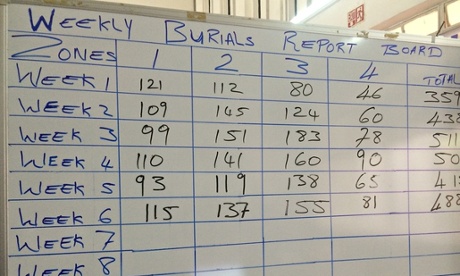 WEEKLY BURIALS REPORT BOARD
ZONES 1 2 3 4 TOTAL
WEEK 1 121 112 80 46 359
WEEK 2 109 145 124 60 438
WEEK 3 99 151 183 78 511
WEEK 4 110 141 160 90 50
WEEK 5 93 119 138 65 41
WEEK 6 115 137 155 81 488
WEEK 7
WEEK 8